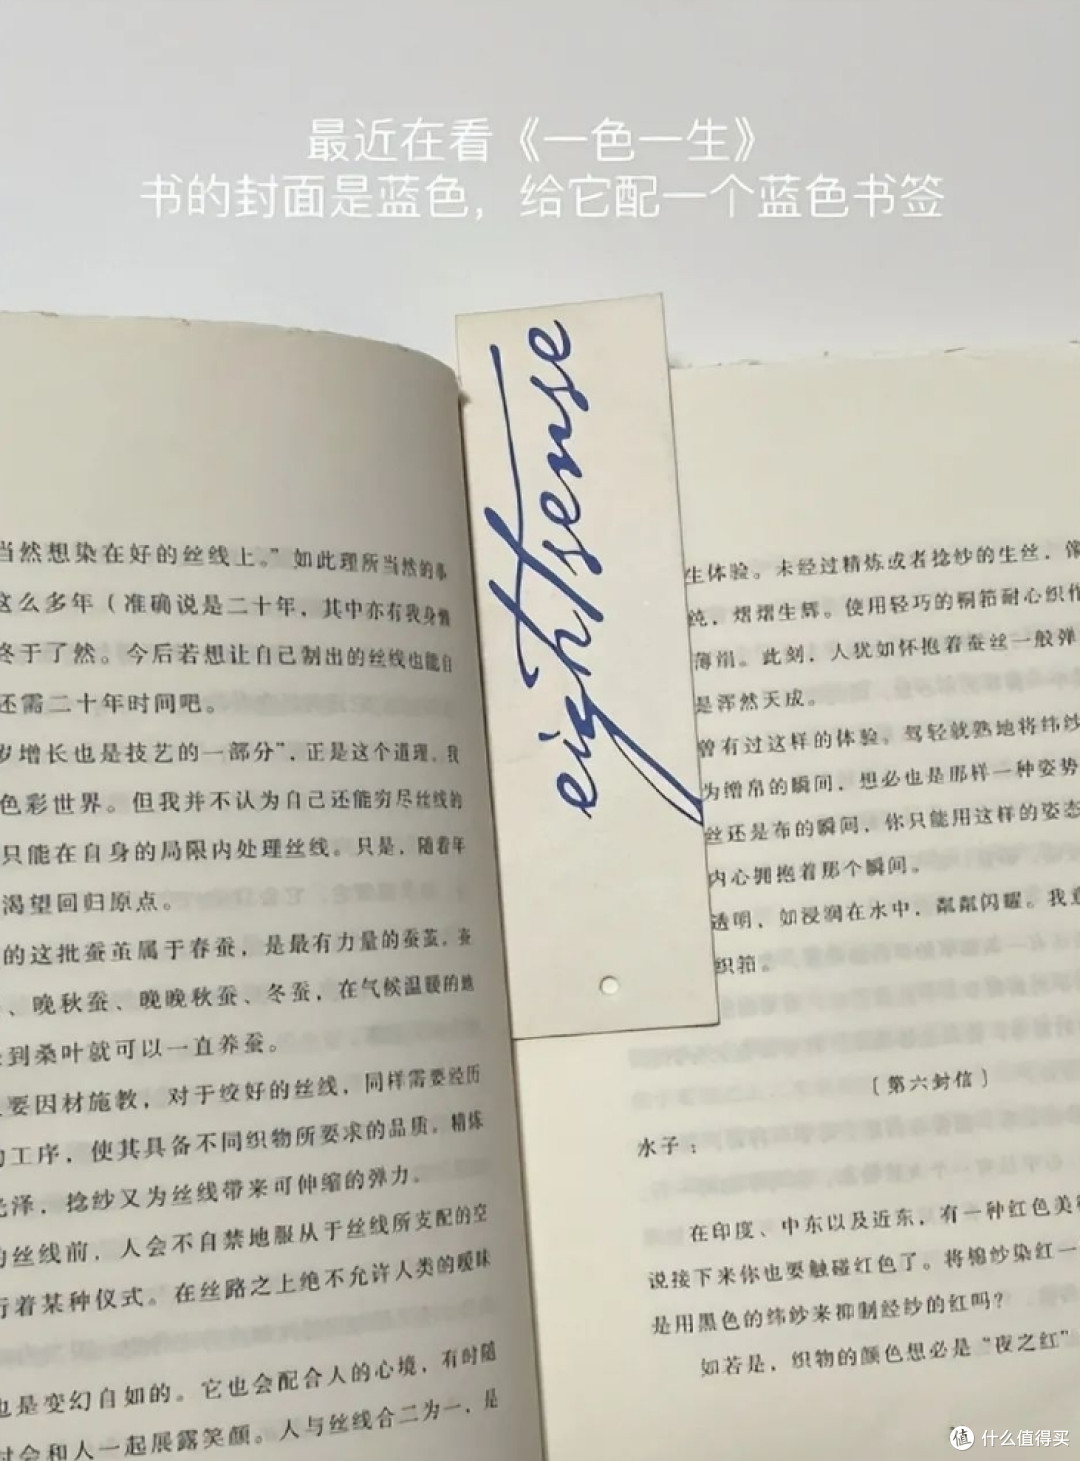 最近在看《一色一生》
书的封面是蓝色，给它配一个蓝色书签
eightsense
当然想染在好的丝线上。”如此理所当然的事
这么多年（准确说是二十年，其中亦有我身懒
终于了然。今后若想让自己制出的丝线也能自
还需二十年时间吧。
岁增长也是技艺的一部分”，正是这个道理。我
色彩世界。但我并不认为自己还能穷尽丝线的
只能在自身的局限内处理丝线。只是，随着年
渴望回归原点。
的这批蚕茧属于春蚕，是最有力量的蚕茧。蚕
、晚秋蚕、晚晚秋蚕、冬蚕，在气候温暖的地
到桑叶就可以一直养蚕。
要因材施教，对于绞好的丝线，同样需要经历
工序，使其具备不同织物所要求的品质。精炼
光泽，捻纱又为丝线带来可伸缩的弹力。
的丝线前，人会不自禁地服从于丝线所支配的空
行着某种仪式。在丝路之上绝不允许人类的暧昧
也是变幻自如的。它也会配合人的心境，有时随
时会和人一起展露笑颜。人与丝线合二为一，是
生体验。未经过精炼或者捻纱的生丝，像
纯，熠熠生辉。使用轻巧的筘耐心织作
薄绢。此刻，人犹如怀抱着蚕丝一般弹
是浑然天成。
曾有过这样的体验。驾轻就熟地将纬纱
为缯帛的瞬间，想必也是那样一种姿势
丝还是布的瞬间，你只能用这样的姿态
内心拥抱着那个瞬间。
透明，如浸润在水中，粼粼闪耀。我意
织筘。
〔第六封信〕
水子：
在印度、中东以及近东，有一种红色美得
说接下来你也要触碰红色了。将棉纱染红一
是用黑色的纬纱来抑制经纱的红吗？
如若是，织物的颜色想必是“夜之红”
值 什么值得买